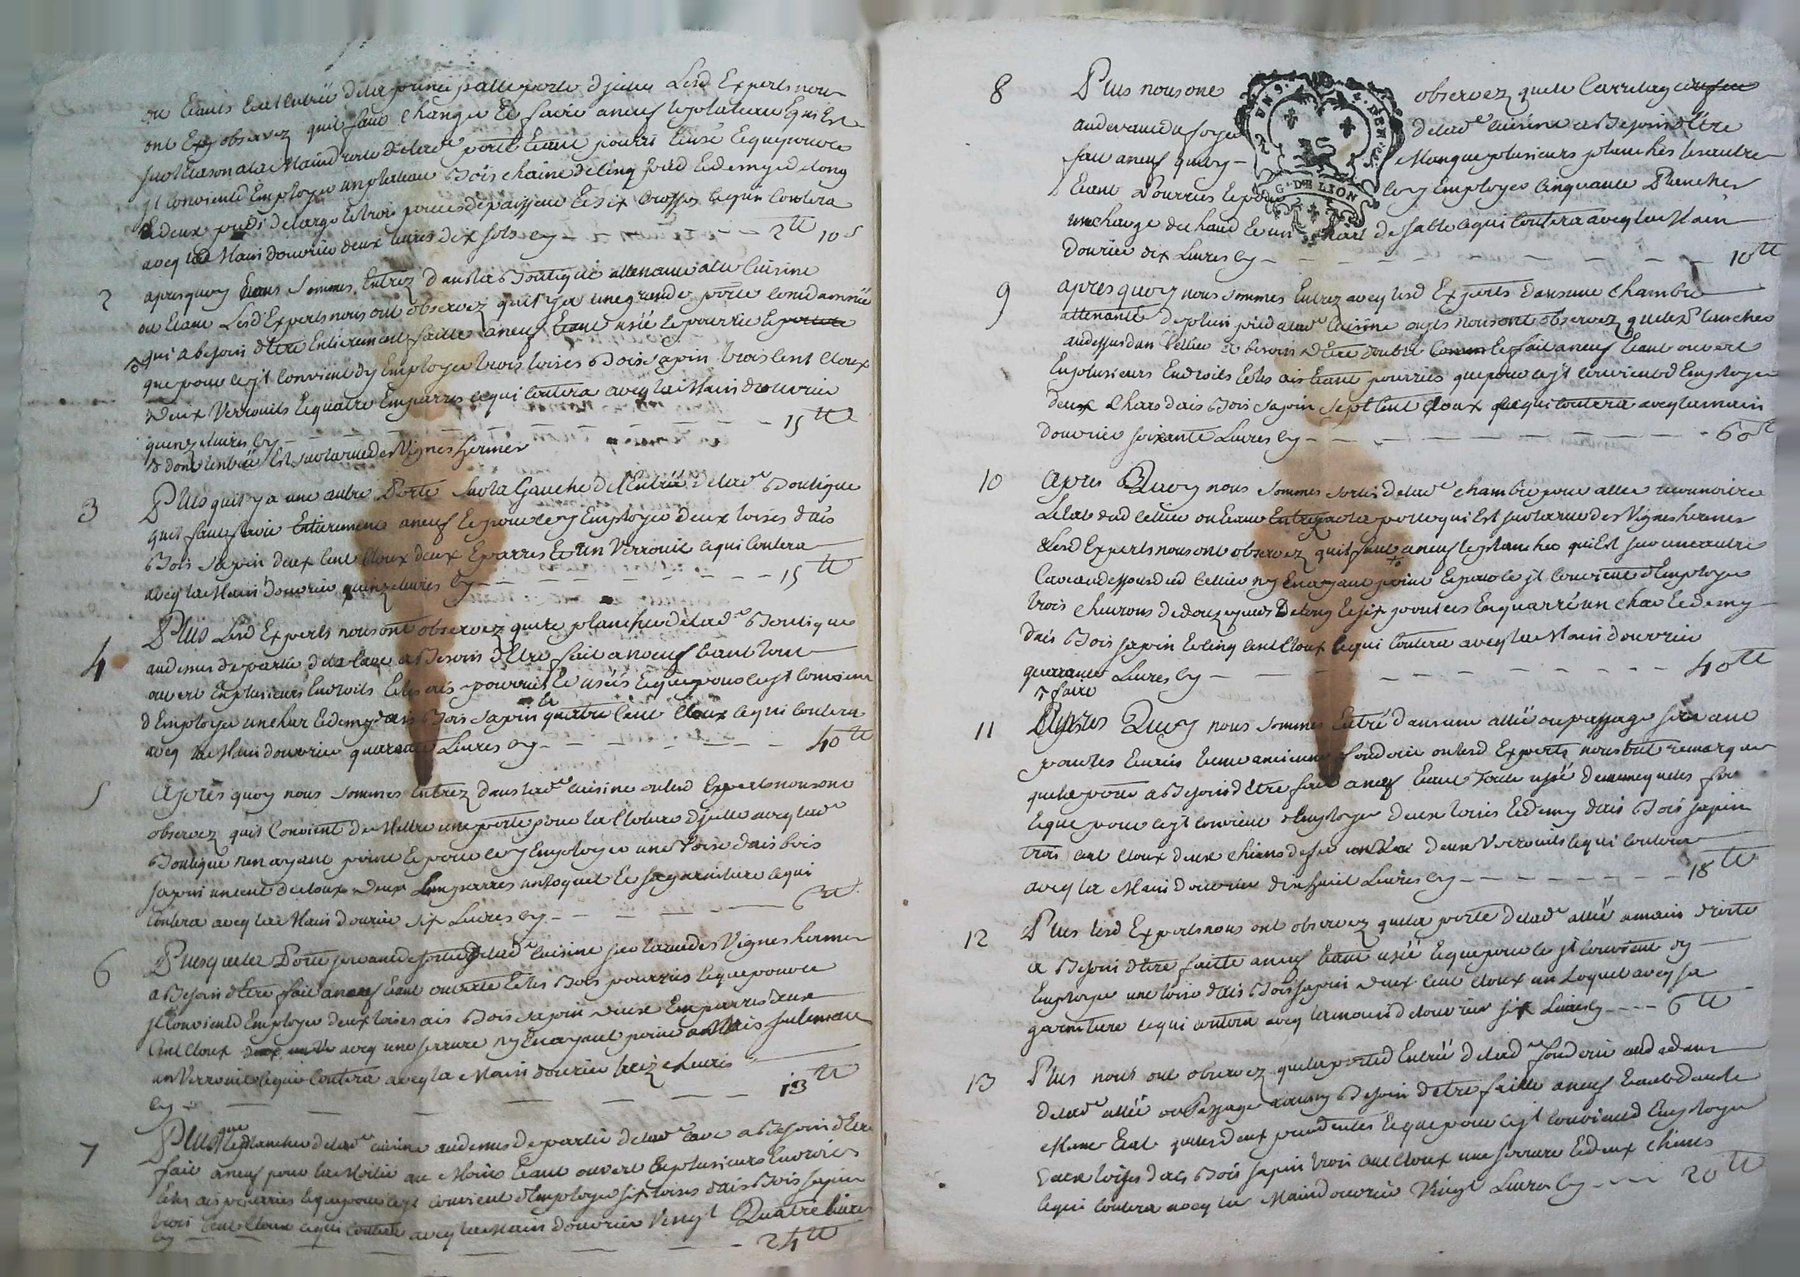 ou étants à l'entrée
ont observez qu'il faut changer et faire à neuf le plateau qui Est
il convient d'Employer un plateau Bois chaine de cinq pieds et demy de long
deux pieds de large et trois pouces d'épaisseur et six crosses ce qui coutera
avecq la Main d'ouvrier deux livres dix sols cy — 2tt 10s
2 apres quoy sommes Entrez dans la Boutique attenante a la Cuisine
ou Etant Lesd Experts nous ont observez qu'il y a une grande porte condamnée
qui a besoin d'être Entierement faitte a neuf Etant usée et pourrie
que pour ce il convient d'y Employer trois toises Bois sapin trois cent cloux
deux Verrouils et quatre Emparres ce qui coutera avecq la Main d'ouvrier
quinze livres cy — 15tt
dont l'entrée Est sur la rue des Vignes hermes
3 Plus qu'il y a une autre Porte sur la Gauche de l'Entrée de lade Boutique
qu'il faut faire Entierement a neuf et pour ce y Employer deux toises d'ais
Bois sapin deux cent cloux deux Eparres et un Verrouil ce qui coutera
avecq la Main d'ouvrier quinze livres cy — 15tt
4 Plus Lesd Experts nous ont observez que le plancher de lade Boutique
au dessus de partie de la Cave a Besoin d'Etre fait a neuf Etant tout
ouvert En plusieurs Endroits et les ais pourris et usés et que pour ce il convient
d'Employer un char et demy d'ais Bois sapin et quatre Cent Cloux ce qui coutera
avecq la Main d'ouvrier quarante Livres cy — 40tt
5 Apres quoy nous sommes Entrez dans lade Cuisine ou lesd Experts nous ont
observez qu'il Convient de Mettre une porte pour la Cloture d'icelle avecq lade
Boutique n'en ayant point et pour ce y Employer une toise d'ais bois
sapin un cent de cloux deux Emparres un loquet et sa garniture ce qui
coutera avecq la Main d'ouvrier six Livres cy — 6tt
6 Plus que la Porte servant de sortie de lade Cuisine sur la rue des Vignes hermes
a Besoin d'Etre fait a neuf Etant ouverte et les Bois pourris et que pour ce
il Convient d'Employer deux toises ais Bois sapin deux Emparres deux
Cent Cloux avecq une serrure n'y En ayant point mais seulement
un Verrouil ce qui Coutera avecq la Main d'ouvrier treize Livres
cy — 13tt
7 Plus que le plancher de lade Cuisine au dessus de partie de lade Cave a Besoin d'Etre
fait a neuf pour la Moitié au Moins Etant ouvert En plusieurs Endroits
et les ais pourris et que pour ce il convient d'Employer six toises d'ais Bois sapin
trois Cent Cloux ce qui Coutera avecq la Main d'ouvrier Vingt Quatre livres
cy — 24tt
8 Plus nous ont observez que le Carrelage
au devant du foyer de lade Cuisine a Besoin d'Etre
fait a neuf quoy Manque plusieurs planches les autres
Etant Pourries et pour ce y Employer Cinquante Planches
une charge de chaud et un de sable ce qui Coutera avecq la Main
d'ouvrier dix Livres cy — 10tt
G. DE LION
9 apres quoy nous sommes Entrez avecq lesd Experts dans une chambre
attenante de plain pied a lade Cuisine ou ils nous ont observez que le Plancher
au dessus d'un Cellier a besoin d'Etre fait a neuf Etant ouvert
En plusieurs Endroits et les ais Etant pourries que pour ce il convient d'Employer
deux Chars d'ais Bois sapin sept Cent Cloux ce qui Coutera avecq la main
d'ouvrier soixante Livres cy — 60tt
10 Apres Quoy nous sommes sortis de lade chambre pour aller reconnoitre
L'etat dud Cellier ou Etant Entrez par la porte qui Est sur la rue des Vignes hermes
Lesd Experts nous ont observez qu'il faut a neuf le plancher qui Est sur une autre
Cave au dessous dud Cellier n'y En ayant point Et pour ce il Convient d'Employer
trois chevrons de douze pieds de long et six pouces En quarré un char et demy
d'ais Bois sapin et cinq cent Cloux ce qui Coutera avecq la Main d'ouvrier
quarante Livres cy — 40tt
faire
11 Apres Quoy nous sommes Entré dans une allée ou passage servant
pour les Ecuries et une ancienne fonderie ou lesd Experts nous ont remarquer
que la porte a Besoin d'Etre fait a neuf Etant toute usée de meme que les
et que pour ce il convient d'Employer deux toises et demy d'ais Bois sapin
trois cent Cloux deux chiens de fer deux Verrouils ce qui Coutera
avecq la Main d'ouvrier dix huit Livres cy — 18tt
12 Plus lesd Experts nous ont observez que la porte de lade allée a main droite
a Besoin d'Etre faitte a neuf Etant usée et que pour ce il Convient d'y
Employer une toise d'ais Bois sapin deux cent Cloux un Loquet avecq sa
garniture ce qui coutera avecq la main d'ouvrier six Livres cy — 6tt
13 Plus nous ont observez que la porte d'Entrée de lade fonderie au dedans
de lade allée ou Passage a aussy Besoin d'etre faitte a neuf Etant dans le
Meme Etat que les deux precedentes et que pour ce il convient d'Employer
deux toises d'ais Bois sapin trois cent Cloux une serrure et deux chiens
ce qui Coutera avecq la Main d'ouvrier Vingt Livres cy — 20tt